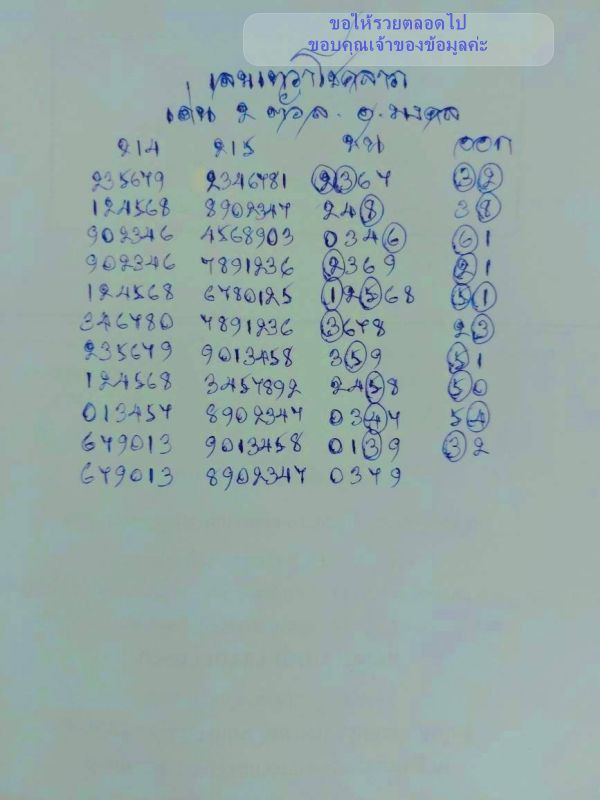 ขอให้รวยตลอดไป
ขอบคุณเจ้าของข้อมูลค่ะ
เลขเทวาโชคลาภ
เด่น 2 ตัวล. อ.มงคล
214 215 ชน ออก
235679 2346781 2367 32
124568 8902347 248 38
902346 4568903 0346 61
902346 7891236 2369 21
124568 6780125 12568 51
346780 7891236 3678 23
235679 9013458 359 51
124568 3457892 2458 50
013457 8902347 0347 54
679013 9013458 0139 32
679013 8902347 0379